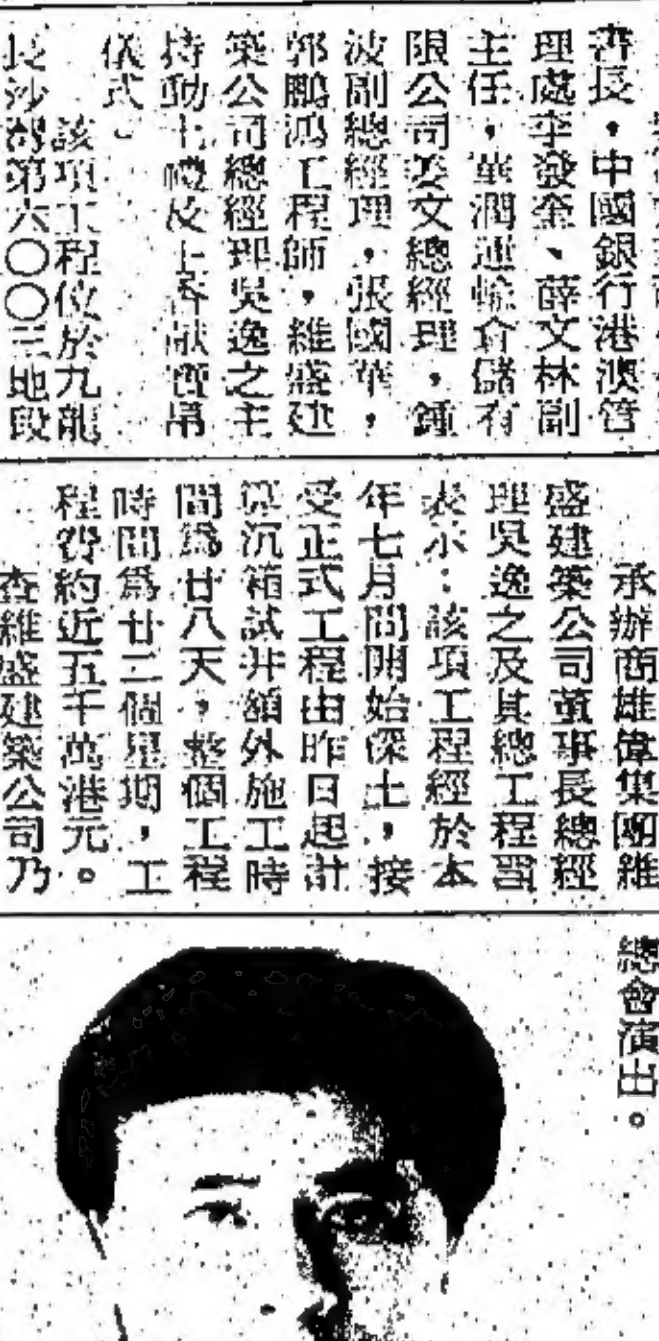 書長，中國銀行港澳管
理處李發金、薛文林副
主任，華潤運輸倉儲有
限公司姜文總經理，鍾
波副總經理，張國華，
郭鵬鴻工程師，維盛建
築公司總經理吳逸之主
持動土禮及上香獻寶吊
儀式。
該項工程位於九龍
長沙灣第六〇〇三地段
承辦商雄偉集團維
盛建築公司董事長總經
理吳逸之及其總工程師
表示：該項工程經於本
年七月間開始探土，接
受正式工程由昨日起計
算沉箱試井額外施工時
間為廿八天，整個工程
時間為廿二個星期，工
程費約近五千萬港元。
查維盛建築公司乃
總會演出。